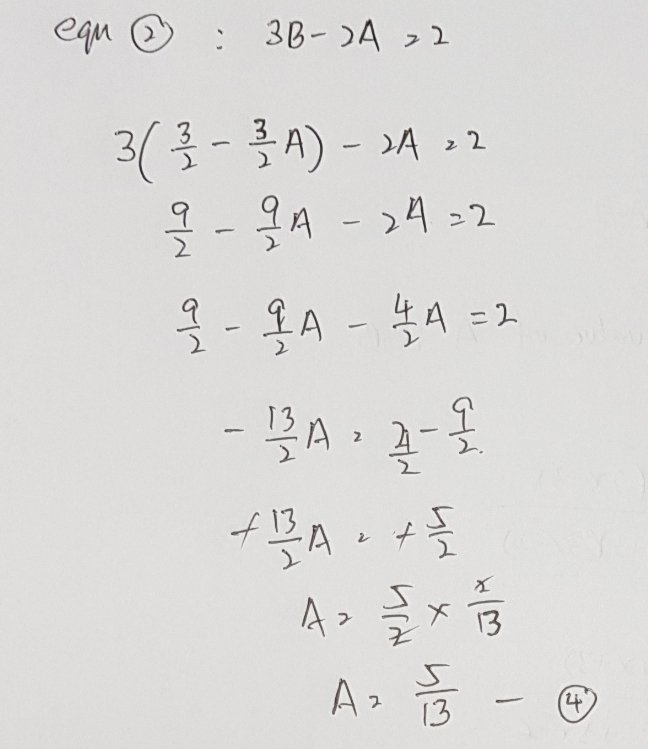 equ ② : 3B - 2A = 2
3(3/2 - 3/2 A) - 2A = 2
9/2 - 9/2 A - 2A = 2
9/2 - 9/2 A - 4/2 A = 2
- 13/2 A = 4/2 - 9/2
+ 13/2 A = + 5/2
A = 5/2 × 2/13
A = 5/13 - ④